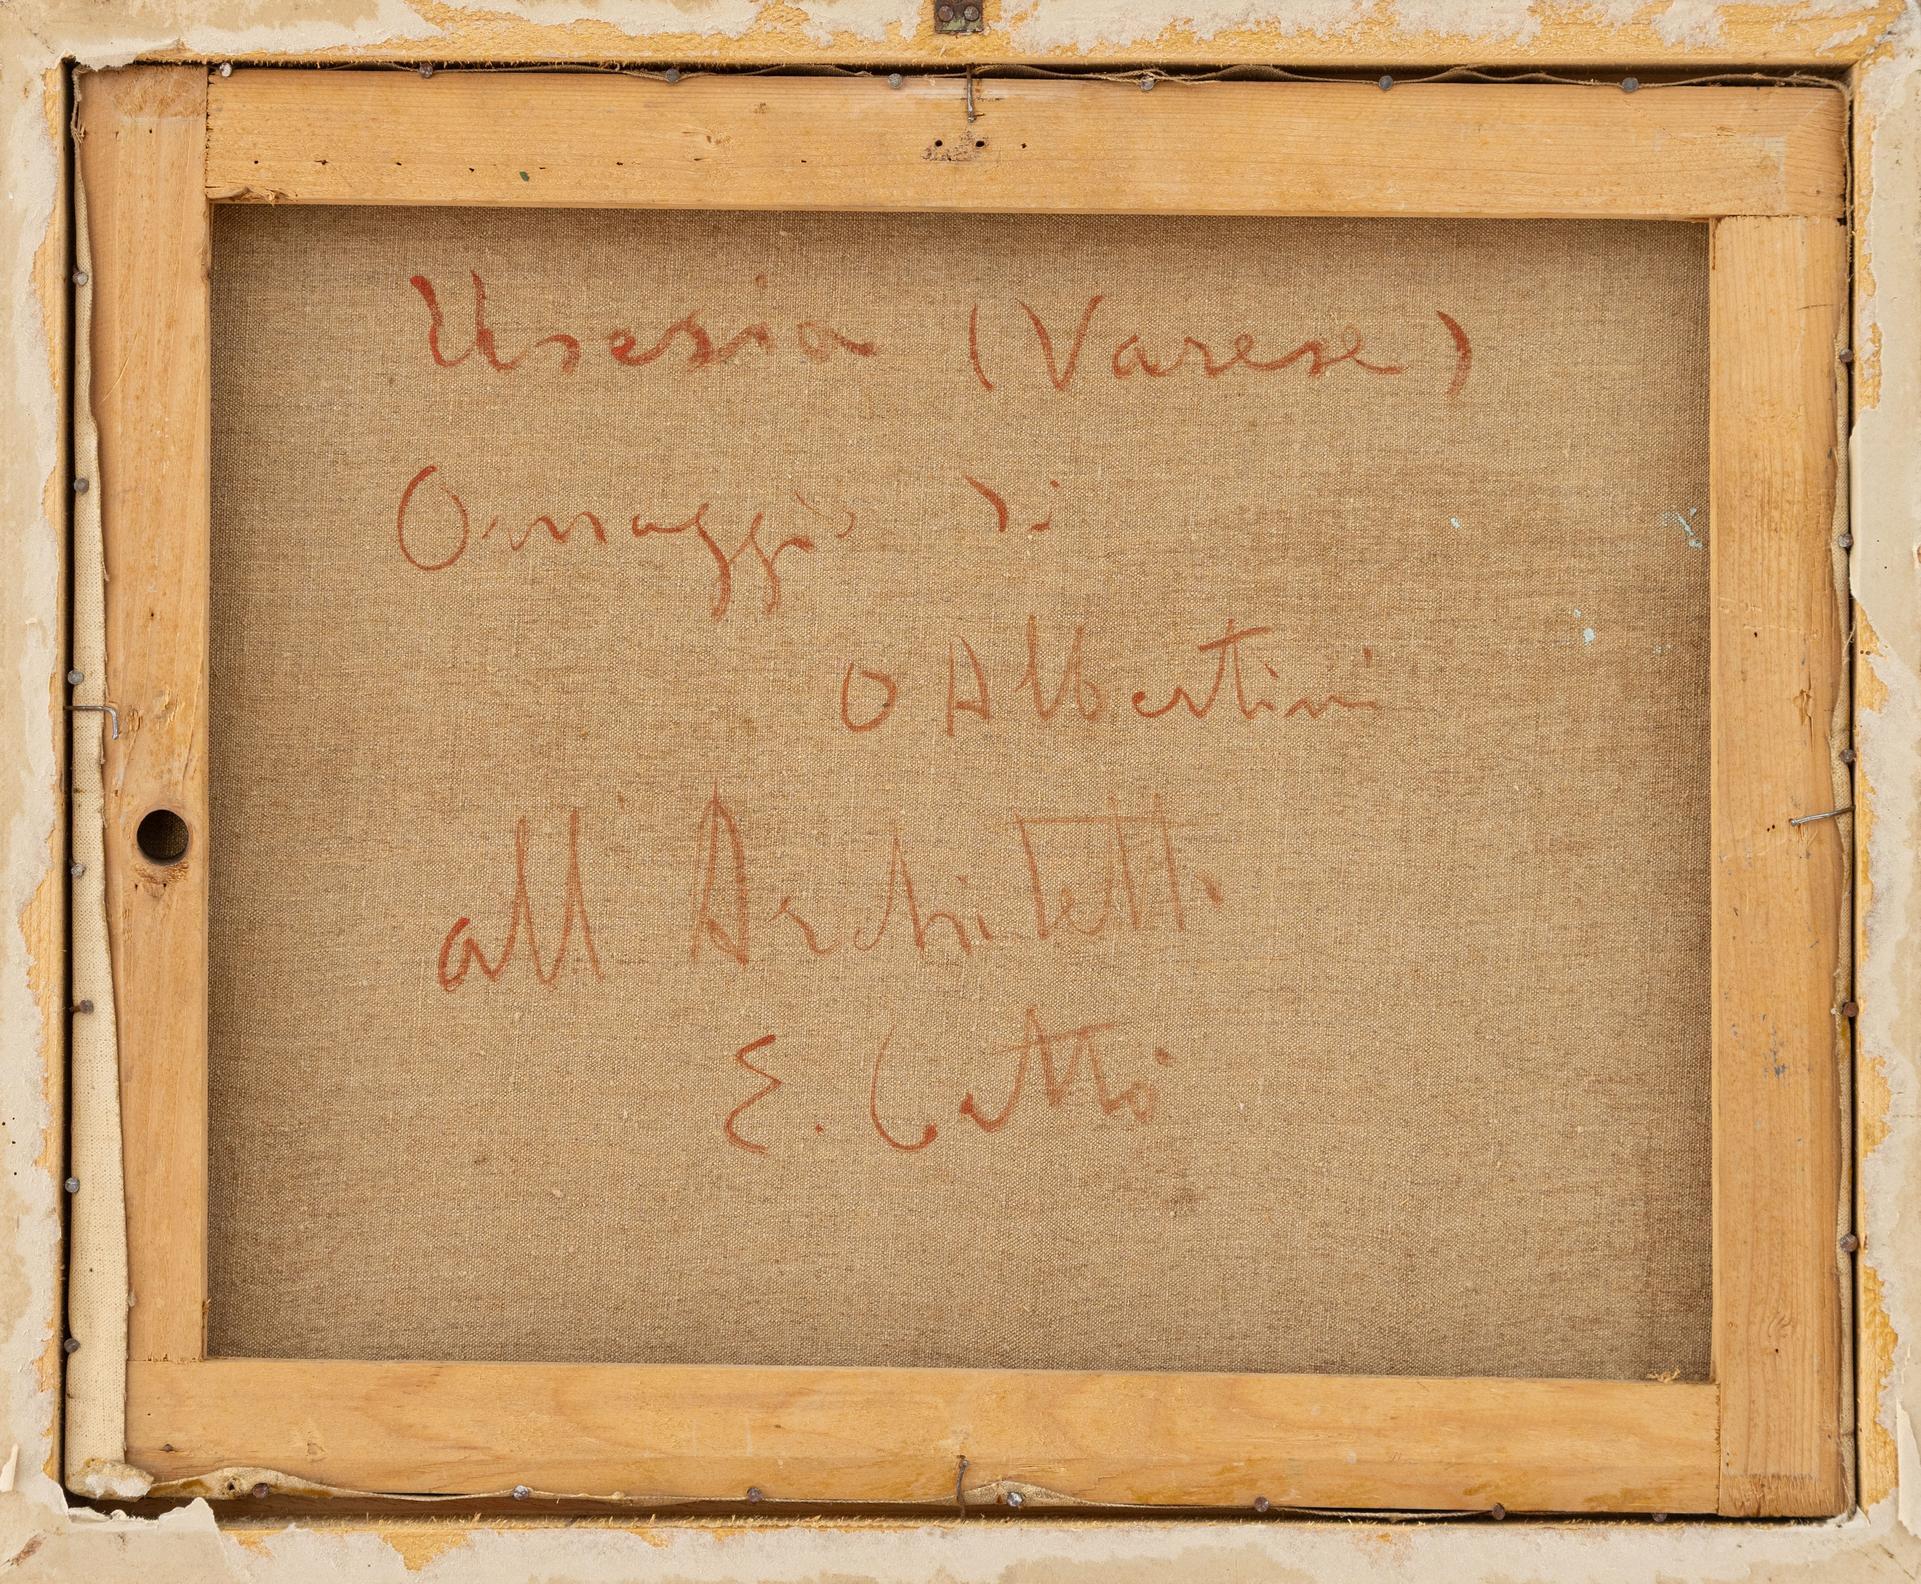 Useria (Varese)
Omaggio di
O Albertini
all Architetto
E. Cattò